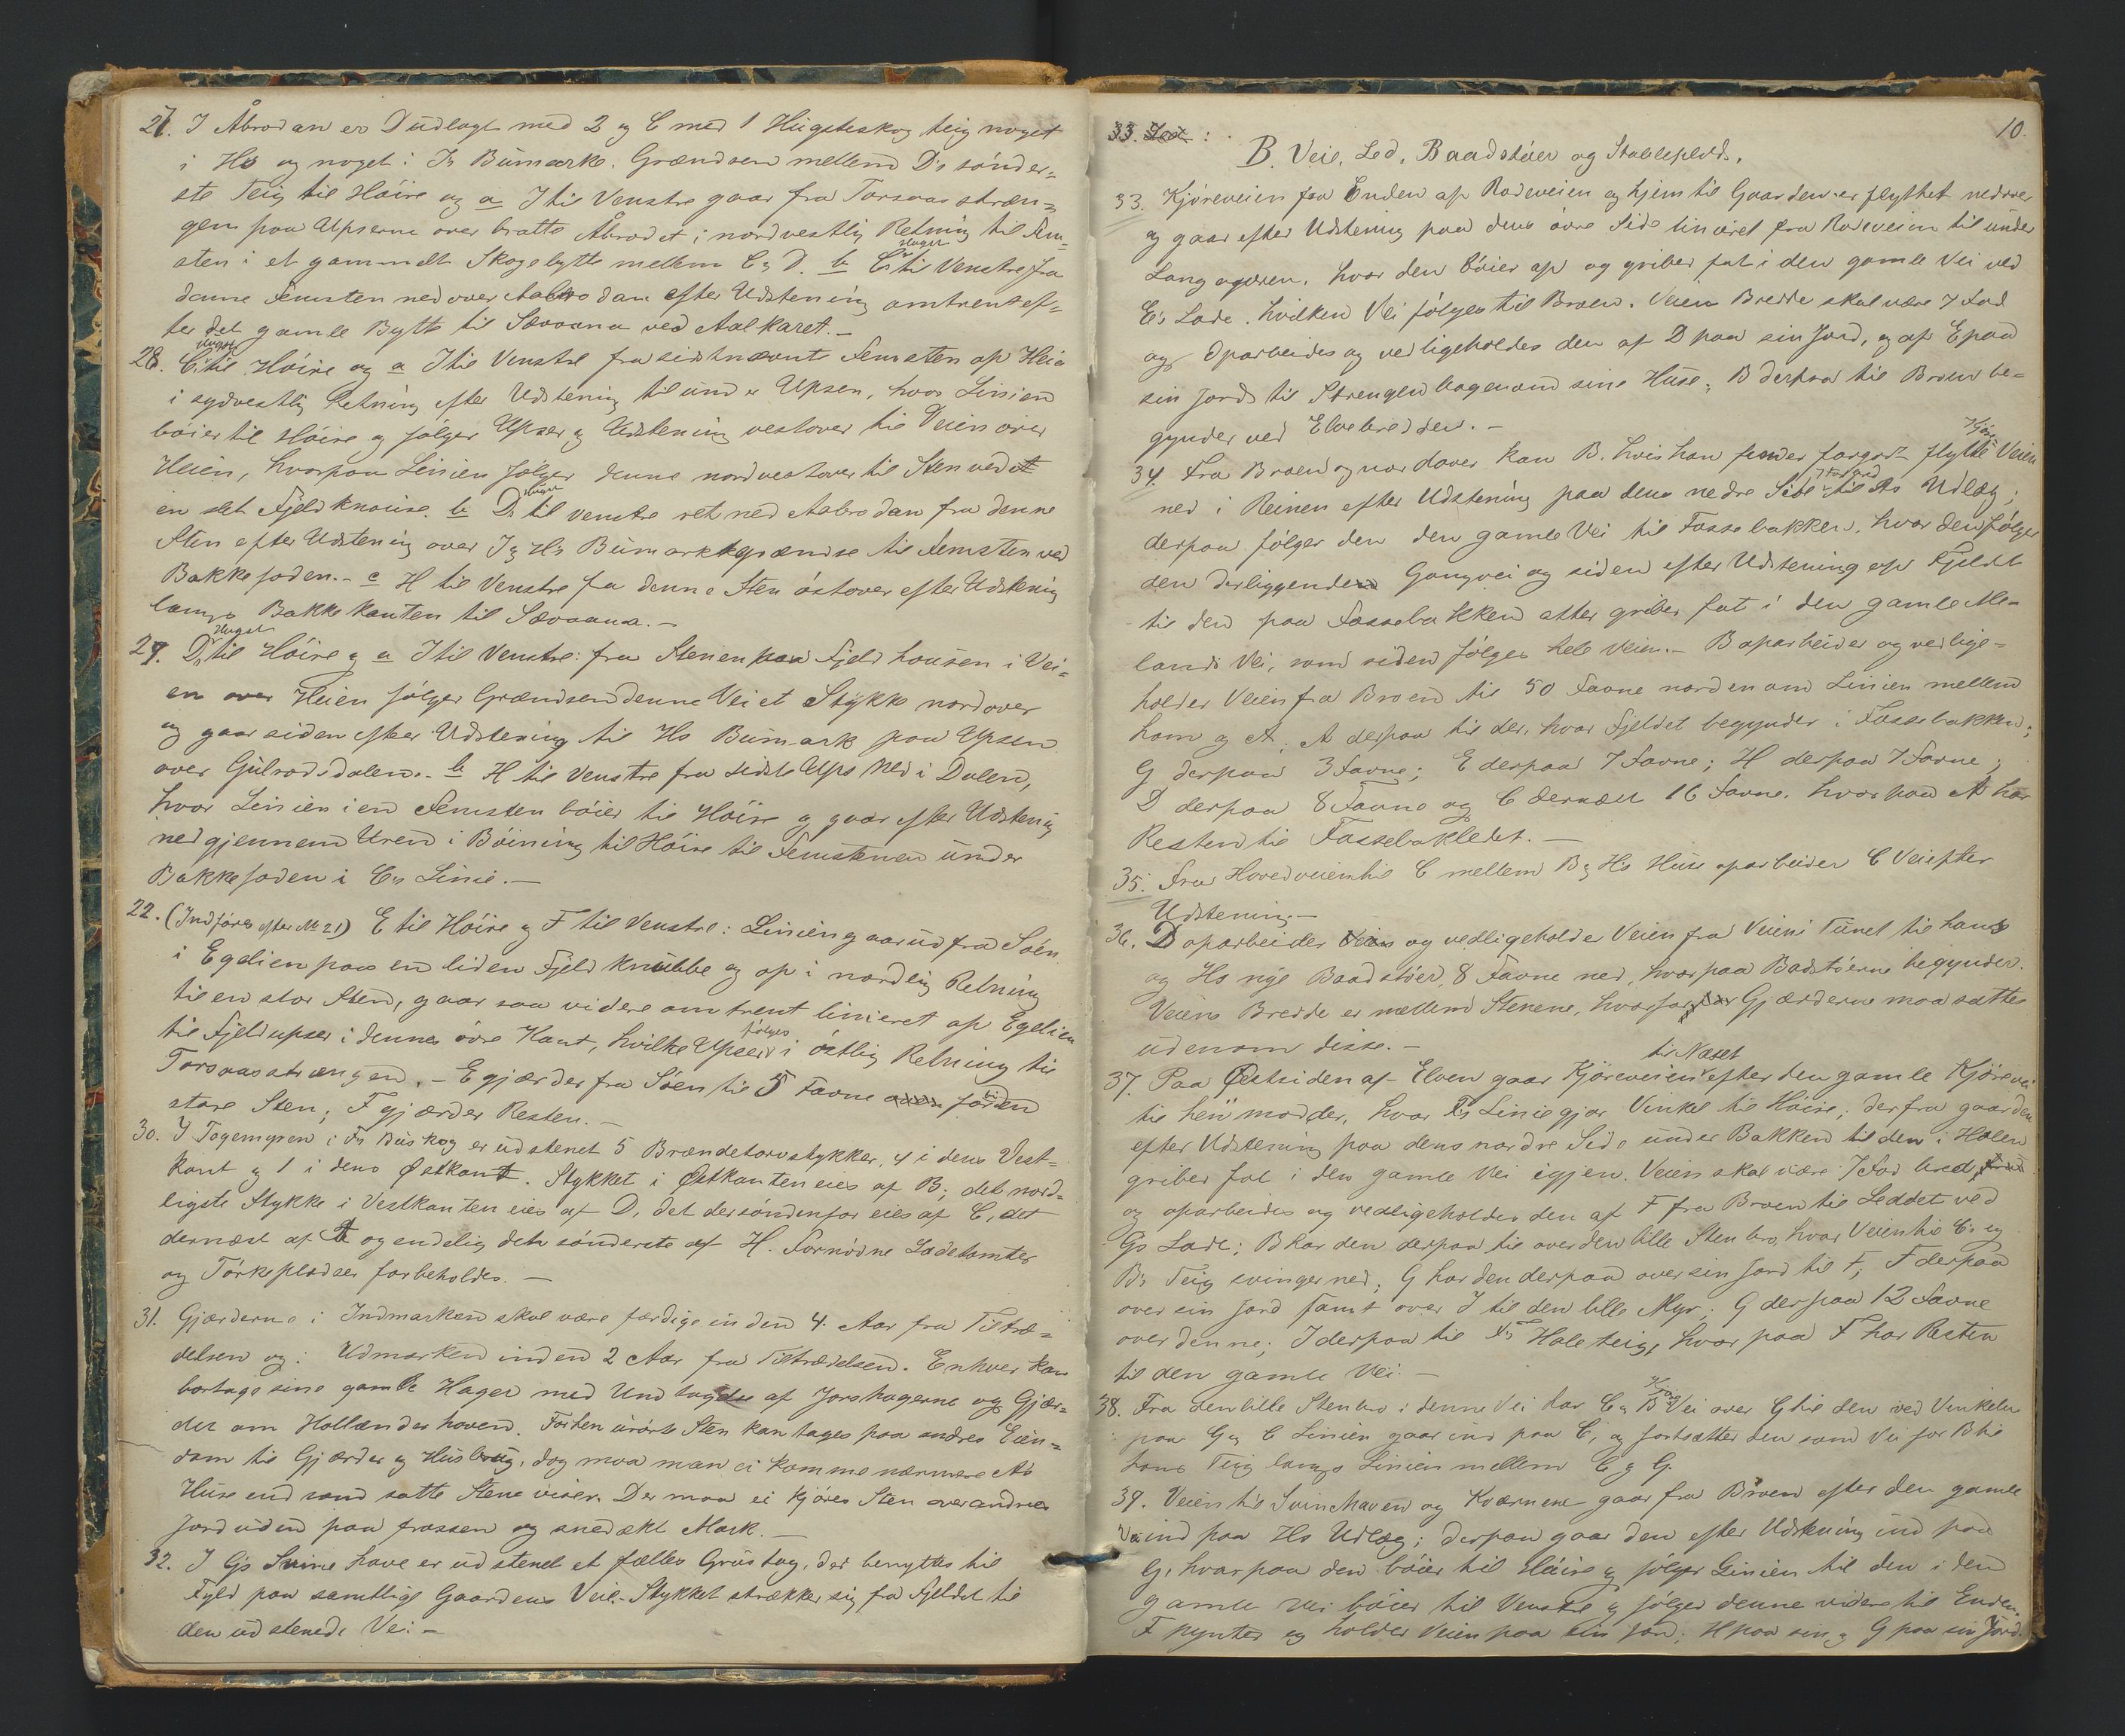 27. I Åbrodan er D udlagt med 2 og C med 1 Hugsteskog teig noget
i Hs og noget i Is Bumark. Grændsen mellem D's sönder=
ste Teig til Höire og a I til Venstre gaar fra Torsaasstræn=
gen paa Upserne over bratte Åbrodet i nordvestlig Retning til Fem=
sten i et gammelt Skogebytte mellem C & D. b C's Hugst til Venstre fra
denne Femsten nedover Aabrodan efter Udstening omtrent ef=
ter det gamle Bytte til Sævaana ved Aalkaret. -
28. C's Hugst til Höire og a I til Venstre fra sidstnævnte Femsten op Heia
i sydvestlig Retning efter Udstening til under Upsen, hvor Linien
böier til Höire og fölger Upser og Udstening vestover til Veien over
Heien, hvorpaa Linien fölger denne nordvestover til Sten ved
en slet Fjeldknause. b D's Hugst til venstre ret ned Aabrodan fra denne
Sten efter Udstening over I & H's Bumarksgrændse til Femsten ved
Bakkefoden. - c H til Venstre fra denne Sten östover efter Udstening
langs Bakkekanten til Sævaana. -
29. D's Hugst til Höire og a I til Venstre: fra Stenen paa Fjeldhausen i Vei=
en over Heien fölger Grændsen denne Vei et Stykke nordover
og gaar siden efter Udstening til Hs Bumark paa Upsen
over Gulrodsdalen. - b H til Venstre fra sidste Ups ned i Dalen,
hvor Linien i en Femsten böier til Höire og gaar efter Udstening
ned gjennem Uren i Böining til Höire til Femstenen under
Bakkefoden i C's Linie. -
22. (Indföres efter No 21) E til Höire og F til Venstre: Linien gaar ud fra Söen
i Egelien paa en liden Fjeldknubbe og op i nordlig Retning
til en stor Sten, gaar saa videre omtrent linieret op Egelien
til Fjeldupser i dennes övre Kant, hvilke Upser fölges i östlig Retning til
Torsaasstrængen. - E gjærder fra Söen til 5 Favne forbi den
store Sten; F gjærder Resten. -
30. I Togemyren i F's Buskog er udstenet 5 Brændetorvstykker, 4 i dens Vest=
kant og 1 i dens Østkant. Stykket i Østkanten eies af B; det nord=
ligste Stykke i Vestkanten eies af D, det dersöndenfor eies af C, det
dernæst af A og endelig det sönderste af H. Fornödne Ladetomter
og Törkepladser forbeholdes. -
31. Gjærderne i Indmarken skal være færdige inden 4. Aar fra Tiltræ=
delsen og i Udmarken inden 2 Aar fra Tiltrædelsen. Enhver kan
borttage sine gamle Hager med Undtagelse af Jorshagerne og Gjær=
det om Hollænderhaven. Forhen urörte Sten kan tages paa andres Eien=
dom til Gjærder og Husbrug, dog maa man ei komme nærmere As
Huse end som satte Stene viser. Der maa ei kjöres Sten over andres
Jord uden paa frossen og snedækt Mark. -
32. I G's Svinehave er udstenet et fælles Grustag, der benyttes til
Fyld paa samtlige Gaardens Veie. - Stykket strækker sig fra Fjeldet til
den udstenede Vei -
10.
33. Led :
B. Veie, Led, Baadstöer og Stableplads.
33. Kjöreveien fra Enden af Rodeveien og hjem til Gaarden er flyttet nedover
og gaar efter Udstening paa dens övre Side linieret fra Rodeveien til under
Langageren, hvor den böier op og griber fat i den gamle Vei ved
E's Lade, hvilken Vei fölges til Broen. Veiens Bredde skal være 7 Fod
og oparbeides og vedligeholdes den af D paa sin Jord, og af E paa
sin Jord til Strengen bagenom sine Huse, B derfra til Broen be=
gynder ved Elvebredden. -
34. Fra Broen og nordover kan B. hvis han finder forgodt flytte Kjöre Veien
ned i Reinen efter Udstening paa dens nedre Side 7 Fod bred til As Udlæg;
derpaa fölger den den gamle Vei til Fossebakken, hvor den fölger
den derliggende Gangvei og siden efter Udstening op Fjeldet
til den paa Fossebakken atter griber fat i den gamle Me=
lands Vei, som siden fölges hele Veien. - B oparbeider og vedlige=
holder Veien fra Broen til 50 Favne nordenom Linien mellem
ham og A; A derpaa til der, hvor Fjeldet begynder i Fossebakken;
G derpaa 3 Favne; E derpaa 7 Favne; H derpaa 7 Favne;
D derpaa 8 Favne og C dernæst 16 Favne, hvorpaa A har
Resten til Fossebakledet. -
35. Fra Hovedveien til C mellem B & H's Huse oparbeider C Vei efter
Udstening -
36. D oparbeider og vedligeholder Veien fra Veien i Tunet til hans
og Hs nye Baadstöer, 8 Favne ned, hvorpaa Baadstöerne begynder.
Veiens Bredde er mellem Stenene, hvorfor Gjærderne maa sættes
udenom disse. -
37. Paa Østsiden af Elven gaar Kjöreveien til Næset efter den gamle Kjörevei
til hen mod der, hvor F's Linie gjör Vinkel til Höire; derfra gaar den
efter Udstening paa dens nordre Side under Bakken til den i Holen
griber fat i den gamle Vei igjen. Veien skal være 7 Fod bred
og oparbeides og vedligeholdes den af F fra Broen til Leddet ved
Gs Lade; B har den derpaa til over den lille Stenbro, hvor Veien til C's og
B's Teig svinger ned; G har den derpaa over sin Jord til F; F derpaa
over sin Jord samt over I til den lille Myr; G derpaa 12 Favne
over denne; I derpaa til F's Holeteig, hvorpaa F har Resten
til den gamle Vei. -
38. Fra den lille Stenbro i denne Vei har C & B Kjöre Vei over G til den ved Vinkelen
paa G & C Linien gaar ind paa C, og fortsætter den som Vei for B til
hans Teig langs Linien mellem C og G.
39. Veien til Svinehaven og Kværnene gaar fra Broen efter den gamle
Vei ind paa Hs Udlæg; derpaa gaar den efter Udstening ind paa
G, hvorpaa den böier til Höire og fölger Linien til den i den
gamle Vei böier til Venstre og fölger denne videre til Enden.
F pynter og holder Veien paa sin Jord; H paa sin og G paa sin Jord.